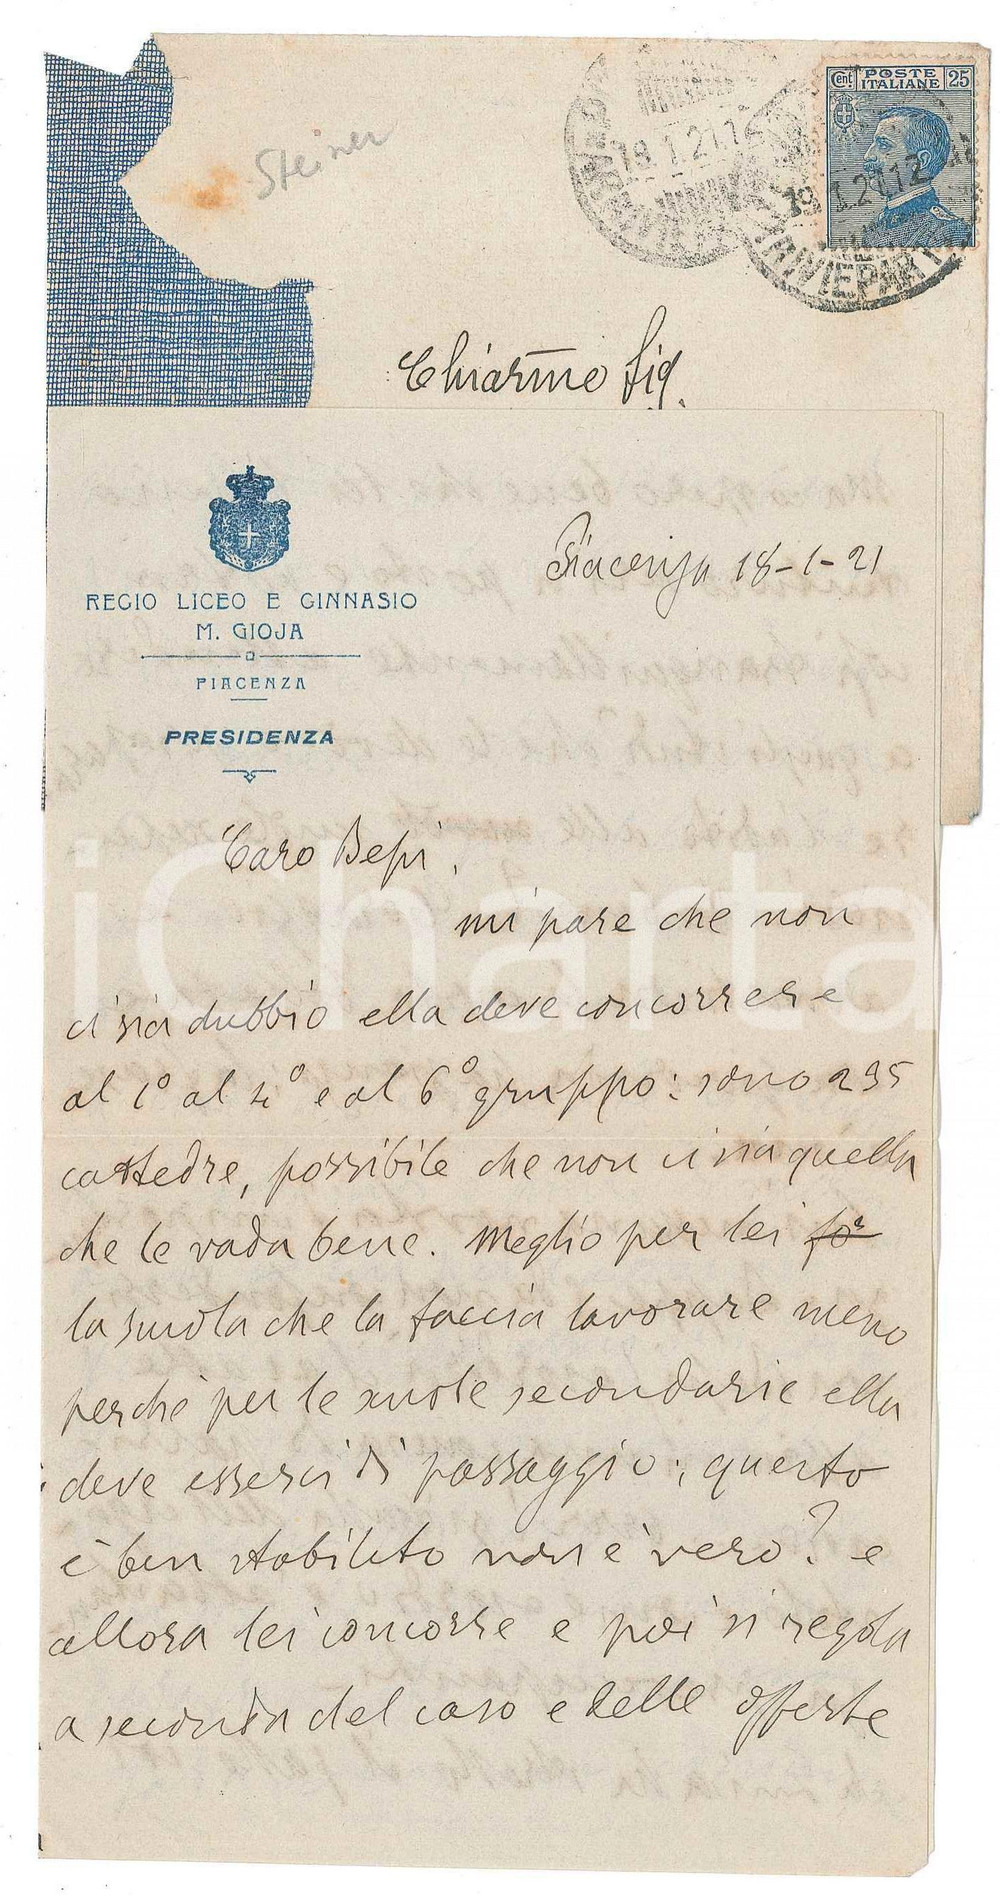 Steiner
Cent. POSTE ITALIANE 25
19 1.21.1
19 1.21.12
ARRIVI E PART
Chiarmo Sig.
REGIO LICEO E GINNASIO
M. GIOJA
PIACENZA
PRESIDENZA
Piacenza 18-1-21
Caro Bepi,
mi pare che non
ci sia dubbio ella deve concorrere
al 1° al 4° e al 6° gruppo: sono 295
cattedre, possibile che non ci sia quella
che le vada bene. Meglio per lei for
la scuola che la faccia lavorare meno
perchè per le scuole secondarie ella
deve esserci di passaggio; questo
è ben stabilito non è vero? e
allora lei concorre e poi si regola
a seconda del caso e delle offerte
iCharta